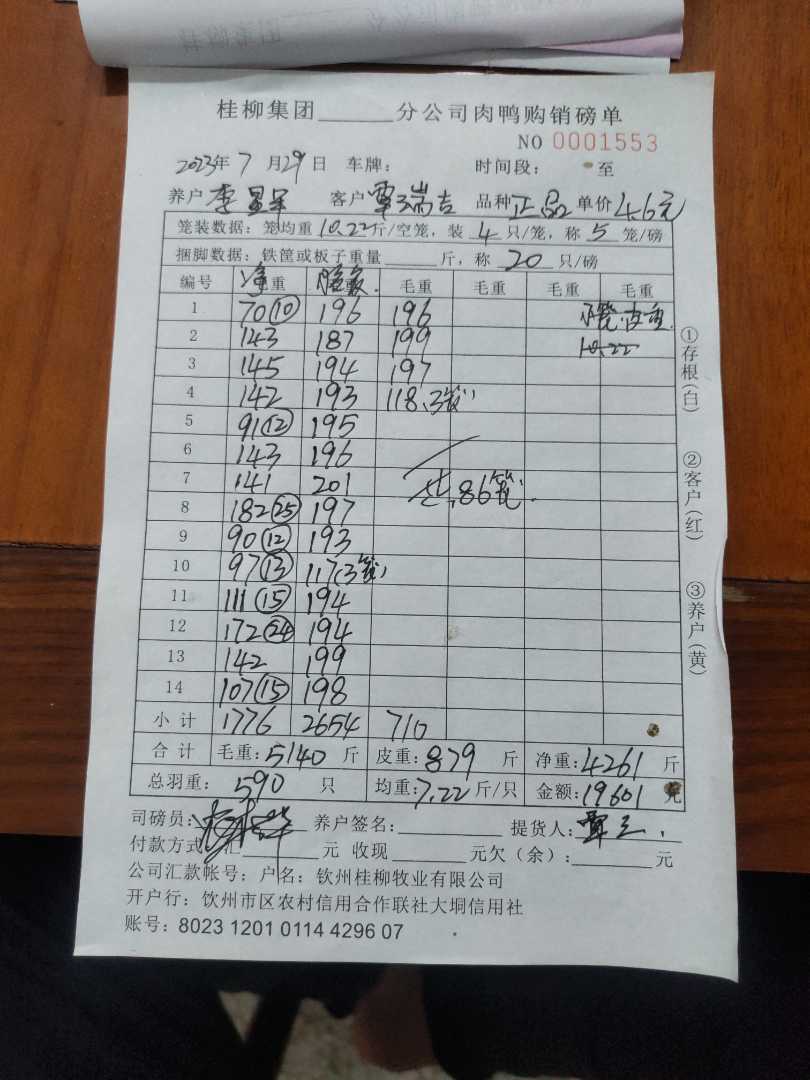 桂柳集团______分公司肉鸭购销磅单
NO 0001553
2023年 7 月 29 日 车牌： 时间段： 至
养户 李 客户 覃瑞吉 品种 正品 单价 4.6元
笼装数据：笼均重 10.22 斤/空笼，装 4 只/笼，称 5 笼/磅
捆脚数据：铁筐或板子重量______斤，称 20 只/磅
编号 净重 毛重 毛重 毛重 毛重
1 70⑩ 196 196 皮重
2 143 187 199 10.22
3 145 194 197
4 142 193 118.3笼
5 91⑫ 195
6 143 196
7 141 201 共86笼.
8 182㉕ 197
9 90⑫ 193
10 97⑬ 117(3笼)
11 111⑮ 194
12 172㉔ 194
13 142 199
14 107⑮ 198
小计 1776 2654 710
合计 毛重：5140 斤 皮重：879 斤 净重：4261 斤
总羽重： 590 只 均重：7.22 斤/只 金额：19601 元
司磅员： 养户签名：__________ 提货人：覃
付款方式： 汇______元 收现______元欠（余）：______元
公司汇款帐号：户名：钦州桂柳牧业有限公司
开户行：饮州市区农村信用合作联社大垌信用社
账号：8023 1201 0114 4296 07
①存根(白)
②客户(红)
③养户(黄)